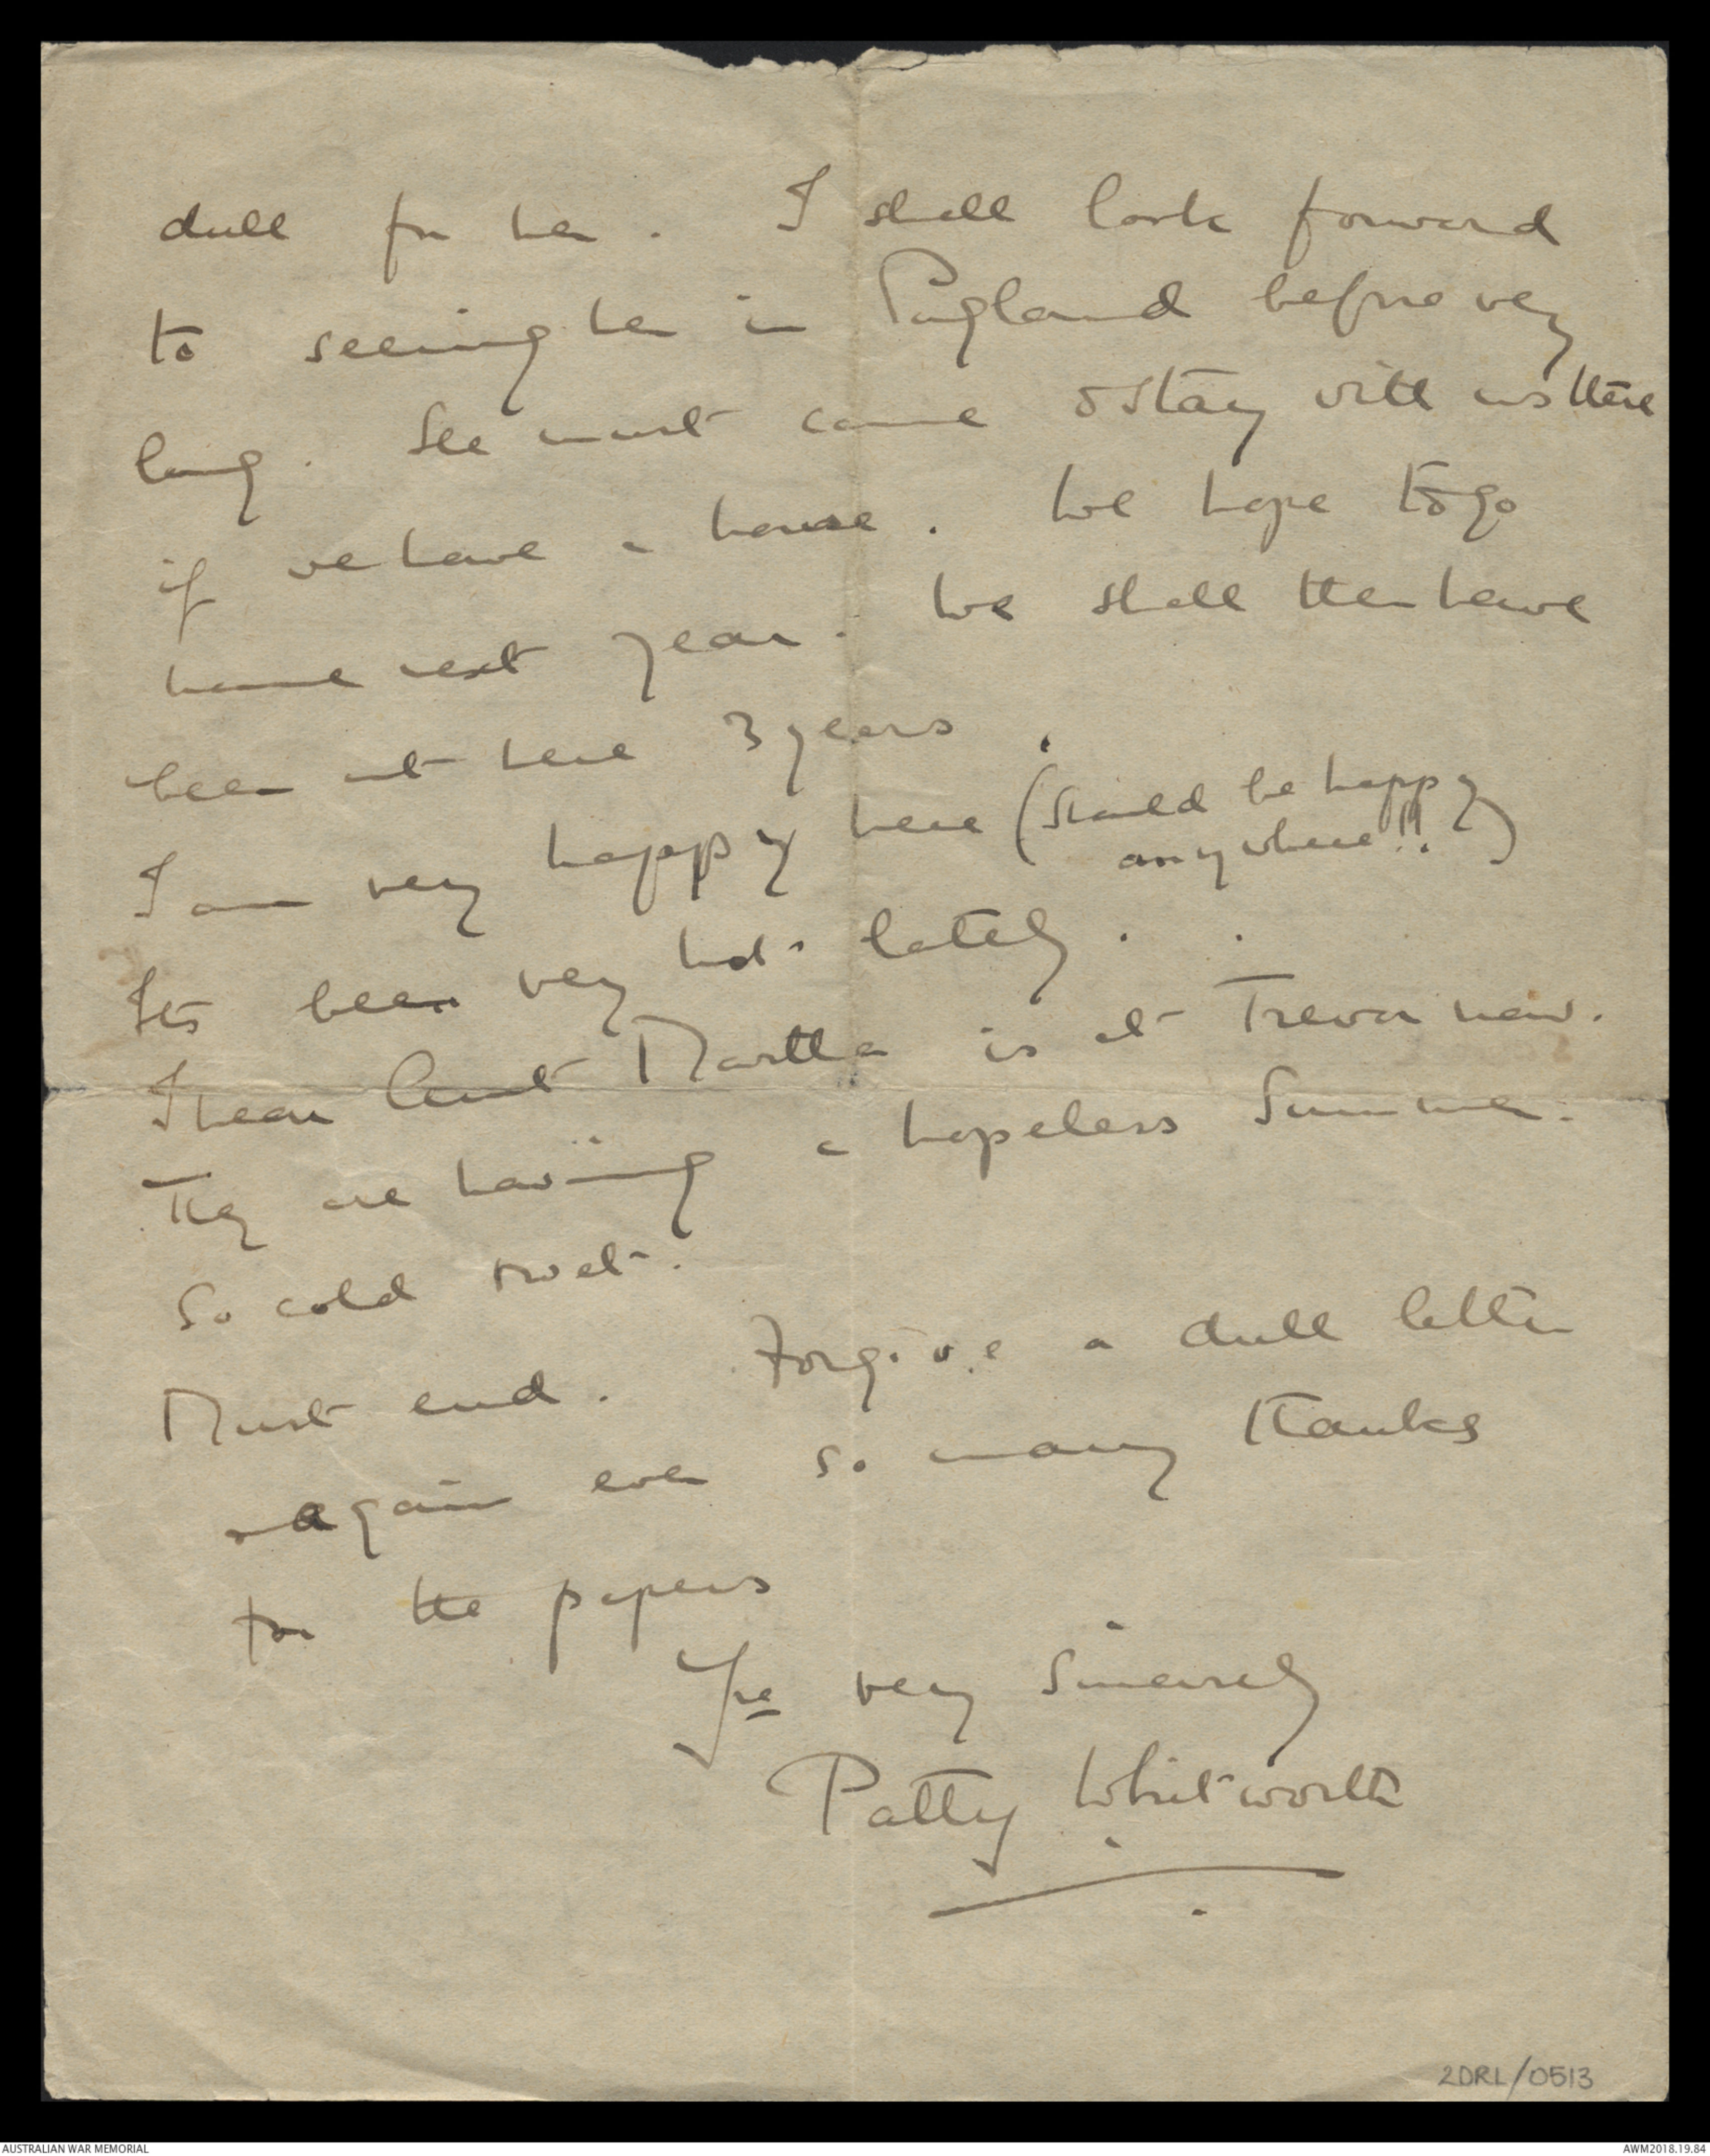 dull for her. I shall look forward
to seeing her in England before very
long. She must come & stay with us there
if we have a house. We hope to go
home next year. We shall then have
been out here 3 years.
I am very happy here (should be happy
anywhere!!)
Its been very hot lately.
I hear Aunt Martha is at Trevor now.
They are having a hopeless summer.
So cold & wet.
Must end. Forgive a dull letter
& again ever so many thanks
for the papers
Yrs very sincerely
Patty Whitworth
2DRL/0513
AUSTRALIAN WAR MEMORIAL
AWM2018.19.84